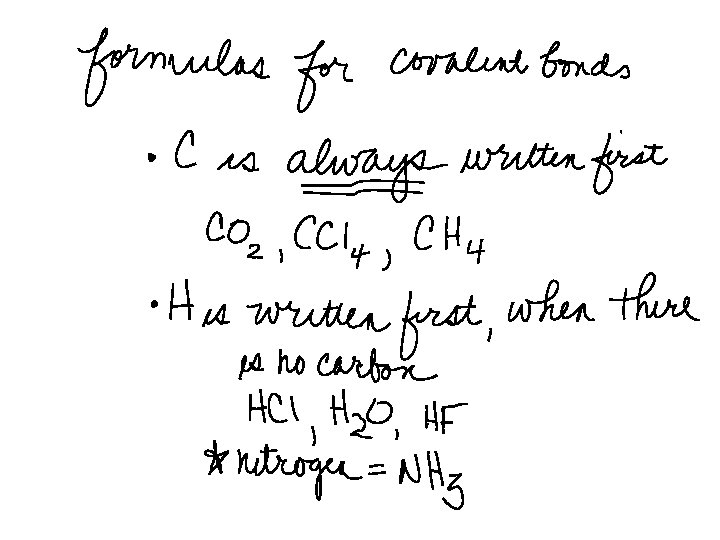 formulas for covalent bonds
• C is always written first
CO₂, CCl₄, CH₄
• H is written first, when there
is no carbon
HCl, H₂O, HF
* nitrogen = NH₃